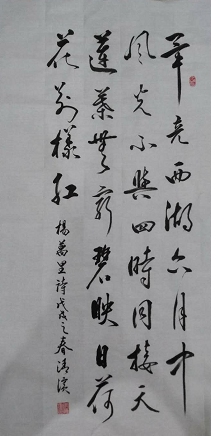 畢竟西湖六月中
風光不與四時同接天
蓮葉無窮碧映日荷
花別樣紅
楊萬里詩戊戌之春清溪